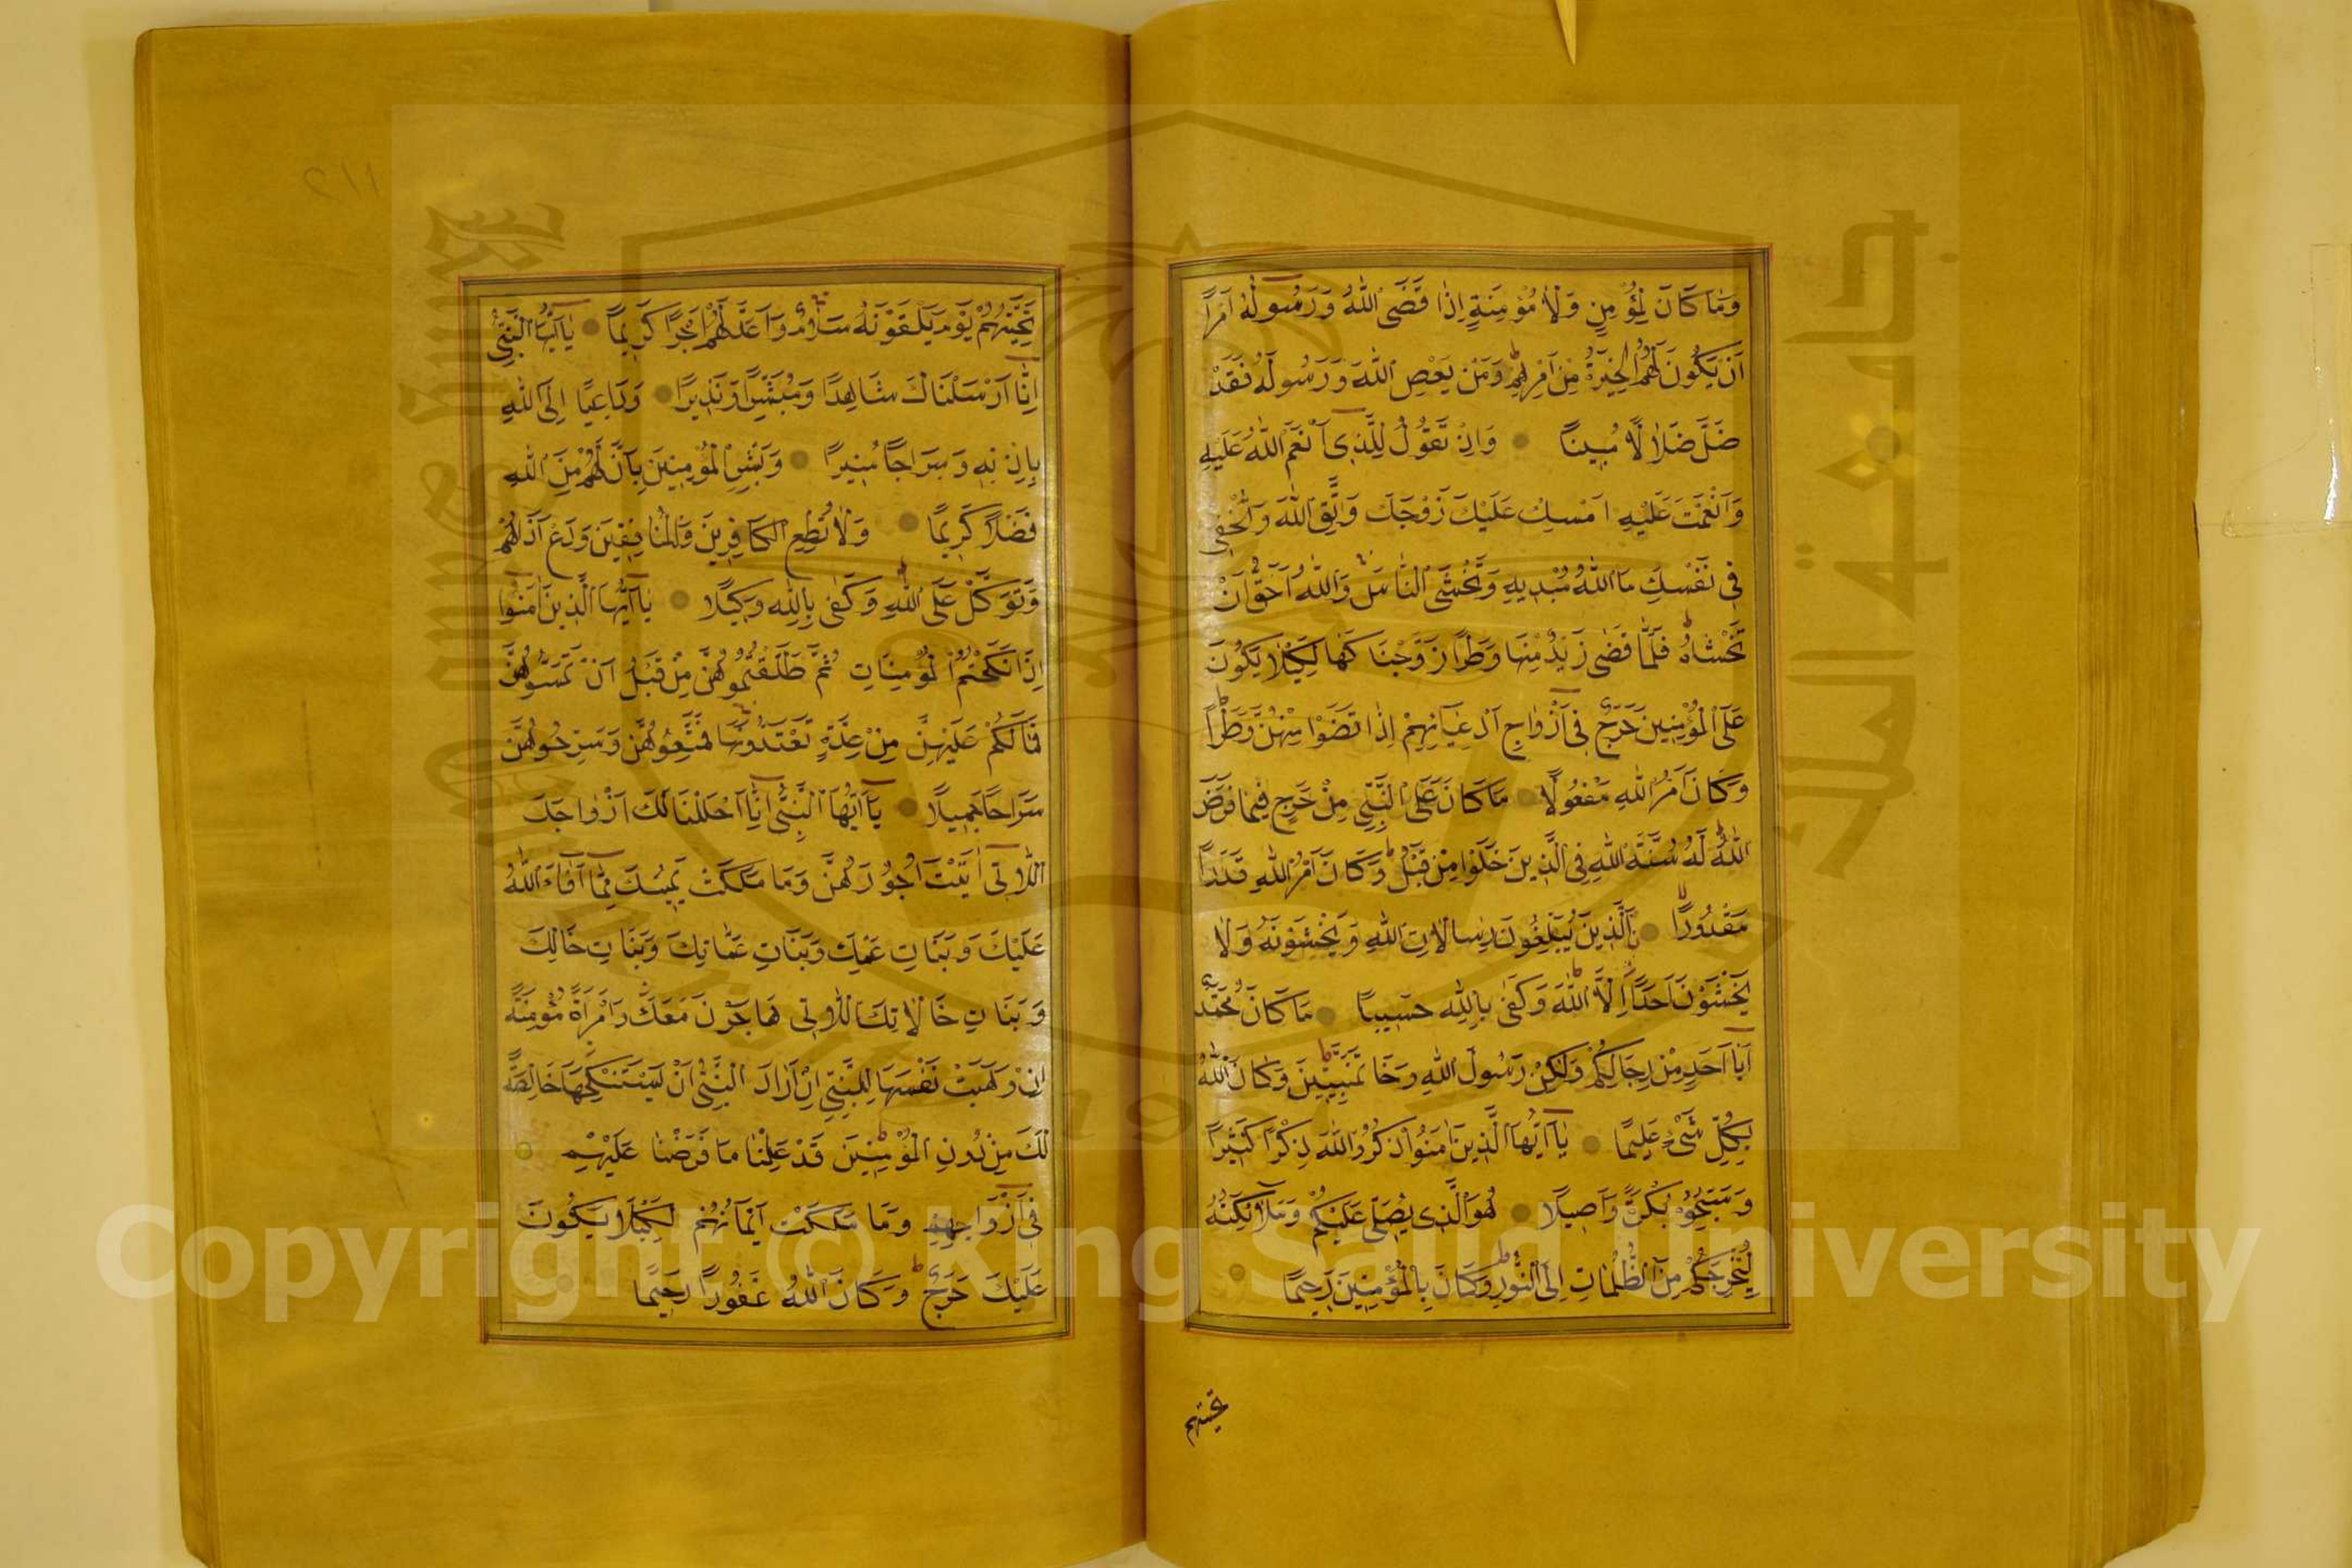 وَمَا كَانَ لِمُؤْمِنٍ وَلَا مُؤْمِنَةٍ اِذَا قَضَى اللّٰهُ وَرَسُولُهُ اَمْرًا
اَنْ يَكُونَ لَهُمُ الْخِيَرَةُ مِنْ اَمْرِهِمْ وَمَنْ يَعْصِ اللّٰهَ وَرَسُولَهُ فَقَدْ
ضَلَّ ضَلَالًا مُبِينًا وَاِذْ تَقُولُ لِلَّذِى اَنْعَمَ اللّٰهُ عَلَيْهِ
وَاَنْعَمْتَ عَلَيْهِ اَمْسِكْ عَلَيْكَ زَوْجَكَ وَاتَّقِ اللّٰهَ وَتُخْفِى
فِى نَفْسِكَ مَا اللّٰهُ مُبْدِيهِ وَتَخْشَى النَّاسَ وَاللّٰهُ اَحَقُّ اَنْ
تَخْشٰاهُ فَلَمَّا قَضٰى زَيْدٌ مِنْهَا وَطَرًا زَوَّجْنَا كَهَا لِكَيْلَا يَكُونَ
عَلَى الْمُؤْمِنِينَ حَرَجٌ فِى اَزْوَاجِ اَدْعِيَائِهِمْ اِذَا قَضَوْا مِنْهُنَّ وَطَرًا
وَكَانَ اَمْرُ اللّٰهِ مَفْعُولًا مَا كَانَ عَلَى النَّبِىِّ مِنْ حَرَجٍ فِيمَا فَرَضَ
اللّٰهُ لَهُ سُنَّةَ اللّٰهِ فِى الَّذِينَ خَلَوْا مِنْ قَبْلُ وَكَانَ اَمْرُ اللّٰهِ قَدَرًا
مَقْدُورًا اَلَّذِينَ يُبَلِّغُونَ رِسَالَاتِ اللّٰهِ وَيَخْشَوْنَهُ وَلَا
يَخْشَوْنَ اَحَدًا اِلَّا اللّٰهَ وَكَفٰى بِاللّٰهِ حَسِيبًا مَا كَانَ مُحَمَّدٌ
اَبَا اَحَدٍ مِنْ رِجَالِكُمْ وَلٰكِنْ رَسُولَ اللّٰهِ وَخَاتَمَ النَّبِيِّينَ وَكَانَ اللّٰهُ
بِكُلِّ شَىْءٍ عَلِيمًا يَا اَيُّهَا الَّذِينَ اٰمَنُوا اذْكُرُوا اللّٰهَ ذِكْرًا كَثِيرًا
وَسَبِّحُوهُ بُكْرَةً وَاَصِيلًا هُوَ الَّذِى يُصَلِّى عَلَيْكُمْ وَمَلَائِكَتُهُ
لِيُخْرِجَكُمْ مِنَ الظُّلُمَاتِ اِلَى النُّورِ وَكَانَ بِالْمُؤْمِنِينَ رَحِيمًا
تحيتهم
٢١١
تَحِيَّتُهُمْ يَوْمَ يَلْقَوْنَهُ سَلَامٌ وَاَعَدَّ لَهُمْ اَجْرًا كَرِيمًا يَا اَيُّهَا النَّبِىُّ
اِنَّا اَرْسَلْنَاكَ شَاهِدًا وَمُبَشِّرًا وَنَذِيرًا وَدَاعِيًا اِلَى اللّٰهِ
بِاِذْنِهِ وَسِرَاجًا مُنِيرًا وَبَشِّرِ الْمُؤْمِنِينَ بِاَنَّ لَهُمْ مِنَ اللّٰهِ
فَضْلًا كَبِيرًا وَلَا تُطِعِ الْكَافِرِينَ وَالْمُنَافِقِينَ وَدَعْ اَذٰىهُمْ
وَتَوَكَّلْ عَلَى اللّٰهِ وَكَفٰى بِاللّٰهِ وَكِيلًا يَا اَيُّهَا الَّذِينَ اٰمَنُوا
اِذَا نَكَحْتُمُ الْمُؤْمِنَاتِ ثُمَّ طَلَّقْتُمُوهُنَّ مِنْ قَبْلِ اَنْ تَمَسُّوهُنَّ
فَمَا لَكُمْ عَلَيْهِنَّ مِنْ عِدَّةٍ تَعْتَدُّونَهَا فَمَتِّعُوهُنَّ وَسَرِّحُوهُنَّ
سَرَاحًا جَمِيلًا يَا اَيُّهَا النَّبِىُّ اِنَّا اَحْلَلْنَا لَكَ اَزْوَاجَكَ
اللَّاتِى اٰتَيْتَ اُجُورَهُنَّ وَمَا مَلَكَتْ يَمِينُكَ مِمَّا اَفَاءَ اللّٰهُ
عَلَيْكَ وَبَنَاتِ عَمِّكَ وَبَنَاتِ عَمَّاتِكَ وَبَنَاتِ خَالِكَ
وَبَنَاتِ خَالَاتِكَ اللَّاتِى هَاجَرْنَ مَعَكَ وَامْرَاَةً مُؤْمِنَةً
اِنْ وَهَبَتْ نَفْسَهَا لِلنَّبِىِّ اِنْ اَرَادَ النَّبِىُّ اَنْ يَسْتَنْكِحَهَا خَالِصَةً
لَكَ مِنْ دُونِ الْمُؤْمِنِينَ قَدْ عَلِمْنَا مَا فَرَضْنَا عَلَيْهِمْ
فِى اَزْوَاجِهِمْ وَمَا مَلَكَتْ اَيْمَانُهُمْ لِكَيْلَا يَكُونَ
عَلَيْكَ حَرَجٌ وَكَانَ اللّٰهُ غَفُورًا رَحِيمًا
Copyright © King Saud University